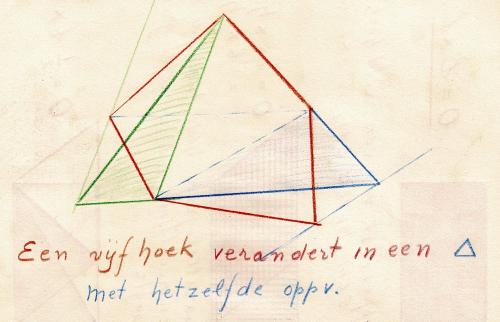 Een vijfhoek verandert in een △
met hetzelfde oppv.